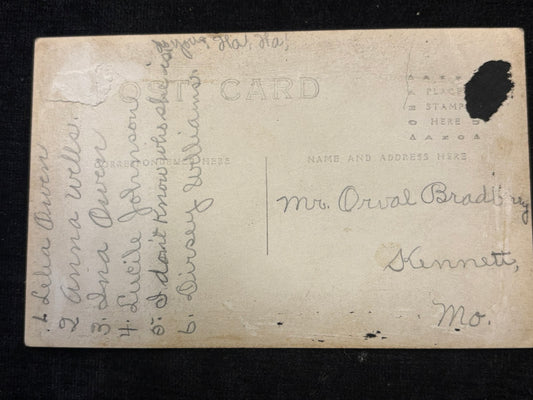 POST CARD
CORRESPONDENCE HERE
NAME AND ADDRESS HERE
PLACE
STAMP
HERE
1. Lelia Owen
2 Anna Wells.
3 Ina Owen
4. Lucile Johnson
5. I don't know who she is
you. Ha! Ha!
6. Dirsey Williams.
Mr. Orval Bradbrey
Kennett,
Mo.